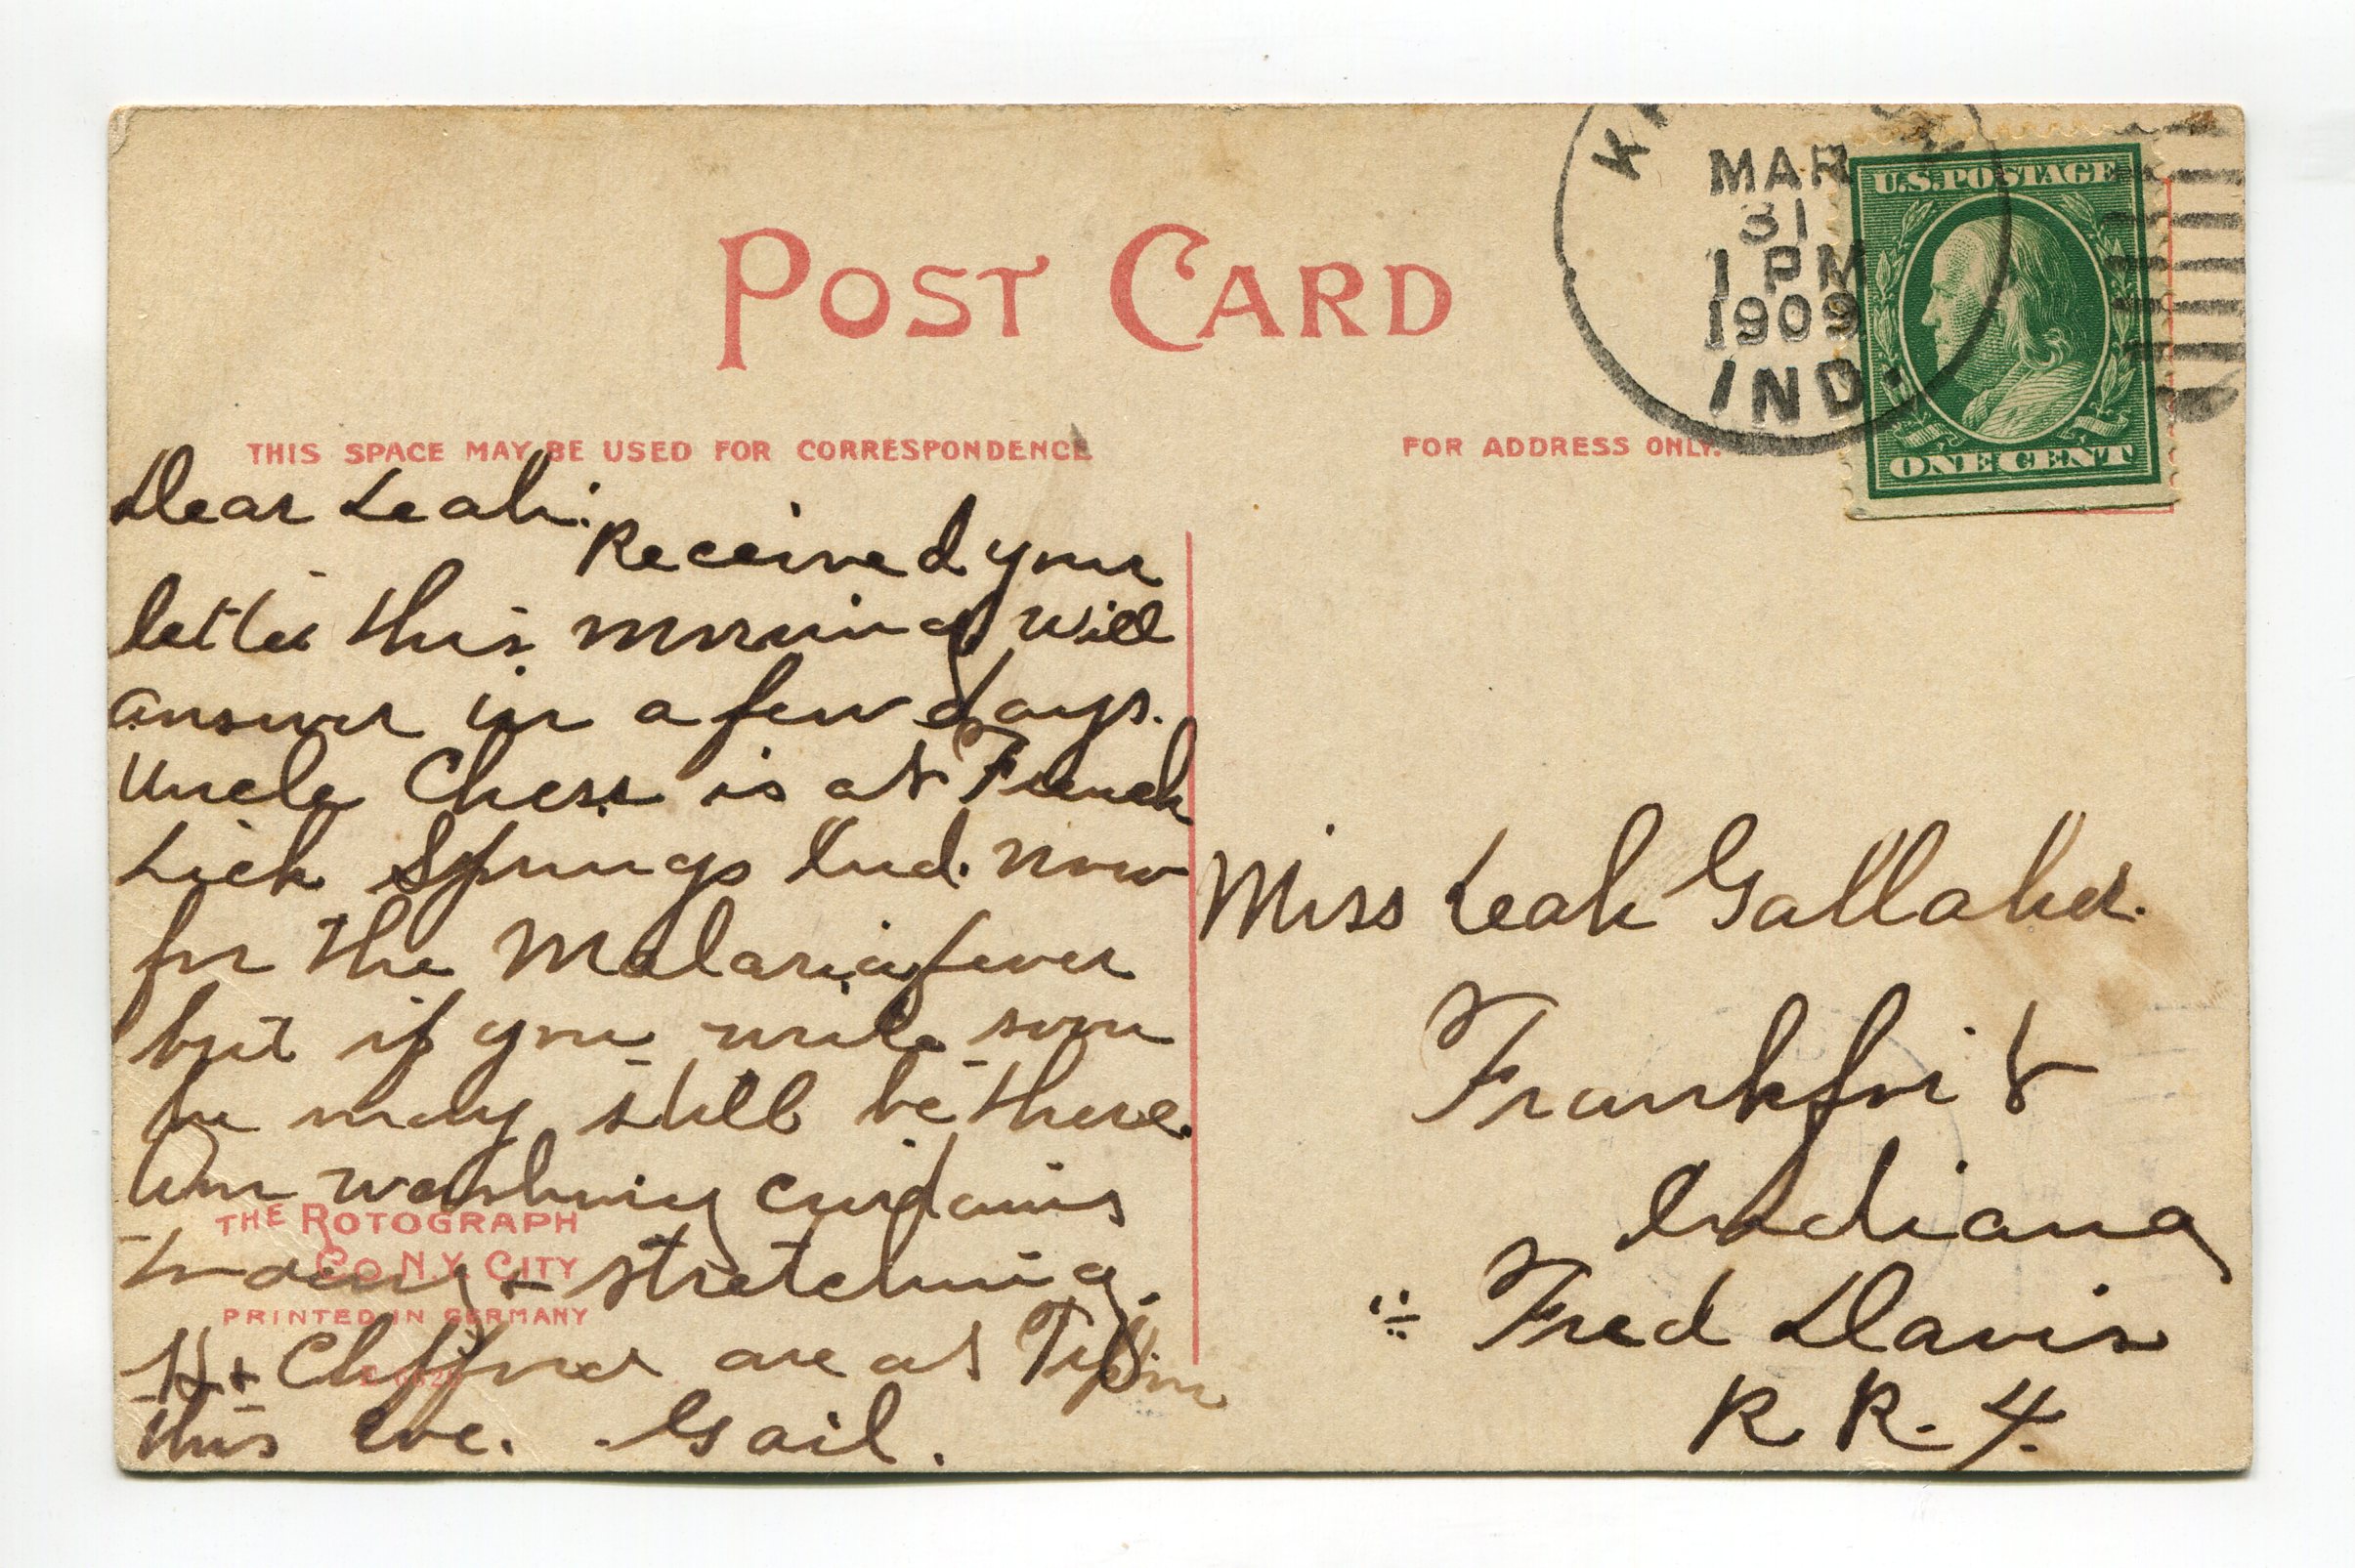 POST CARD
THIS SPACE MAY BE USED FOR CORRESPONDENCE
FOR ADDRESS ONLY.
MAR
31
1 PM
1909
IND.
U.S. POSTAGE
ONE CENT
Dear Leah:
Received your
letter this morning will
answer in a few days.
Uncle Chess is at French
Lick Springs Ind. now
for the Malaria fever
but if you write soon
he may still be there.
Am washing curtains
today & stretching.
H. & are at
this eve. Gail.
THE ROTOGRAPH
CO. N.Y. CITY
PRINTED IN GERMANY
Miss Leah Gallaher.
Frankfort
Indiana
Fred Davis
R. R. 4.